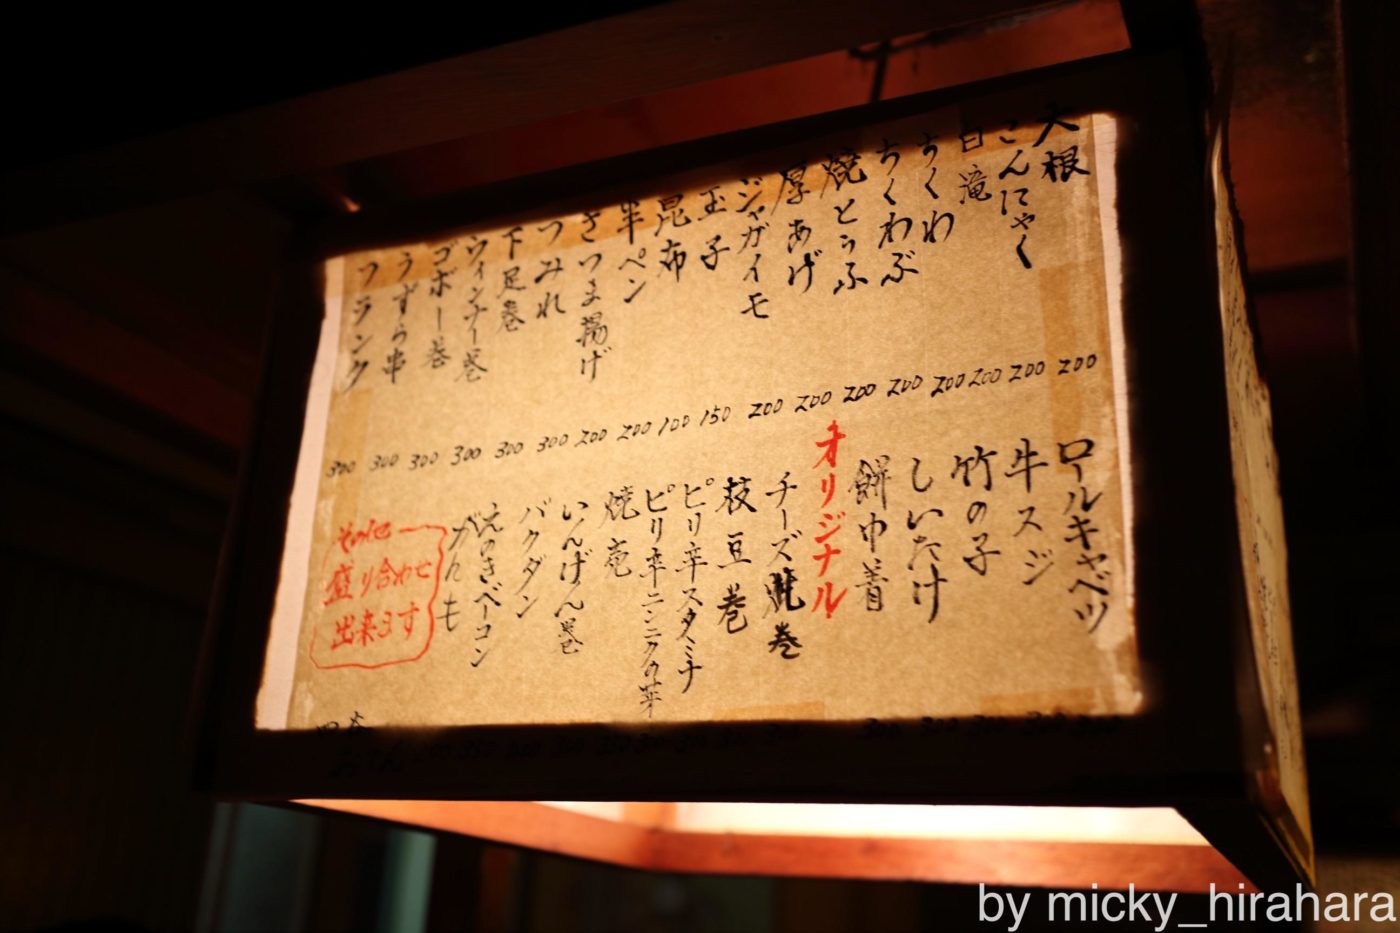 大根 200
こんにゃく 200
白滝 200
ちくわ 200
ちくわぶ 200
焼とうふ 200
厚あげ 200
ジャガイモ 200
玉子 150
昆布 100
半ペン 200
さつま揚げ 200
つみれ 300
下足巻 300
ウィンナー巻 300
ゴボー巻 300
うずら串 300
フランク 300
ロールキャベツ
牛スジ
竹の子
しいたけ
餅巾着
オリジナル
チーズ
巻
枝豆巻
ピリ辛スタミナ
ピリ辛ニンニクの芽
焼売
いんげん巻
バクダン
えのきベーコン
がんも
その他
盛り合わせ
出来ます
by micky_hirahara